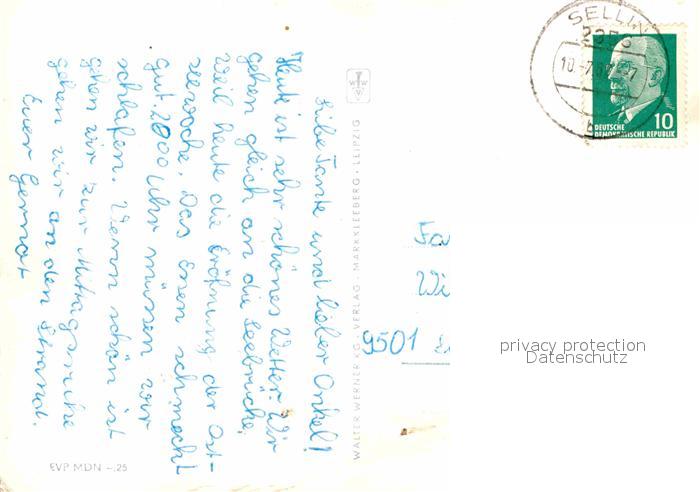 Liebe Tante und lieber Onkel!
Heute ist sehr schönes Wetter. Wir
gehen gleich an die Seebrücke,
weil heute die Eröfnung der Ost-
seewoche. Das Essen schmeckt
gut. 2000 Uhr müssen wir
schlafen. Wenn schön ist
gehen wir zur Mittagsruhe
gehen wir an den Strand.
Euer Gernot
EVP MDN -.25
WALTER WERNER KG · VERLAG · MARKKLEEBERG · LEIPZIG
SELLIN
10
DEUTSCHE
DEMOKRATISCHE REPUBLIK
Fa
Wi
9501
privacy protection
Datenschutz